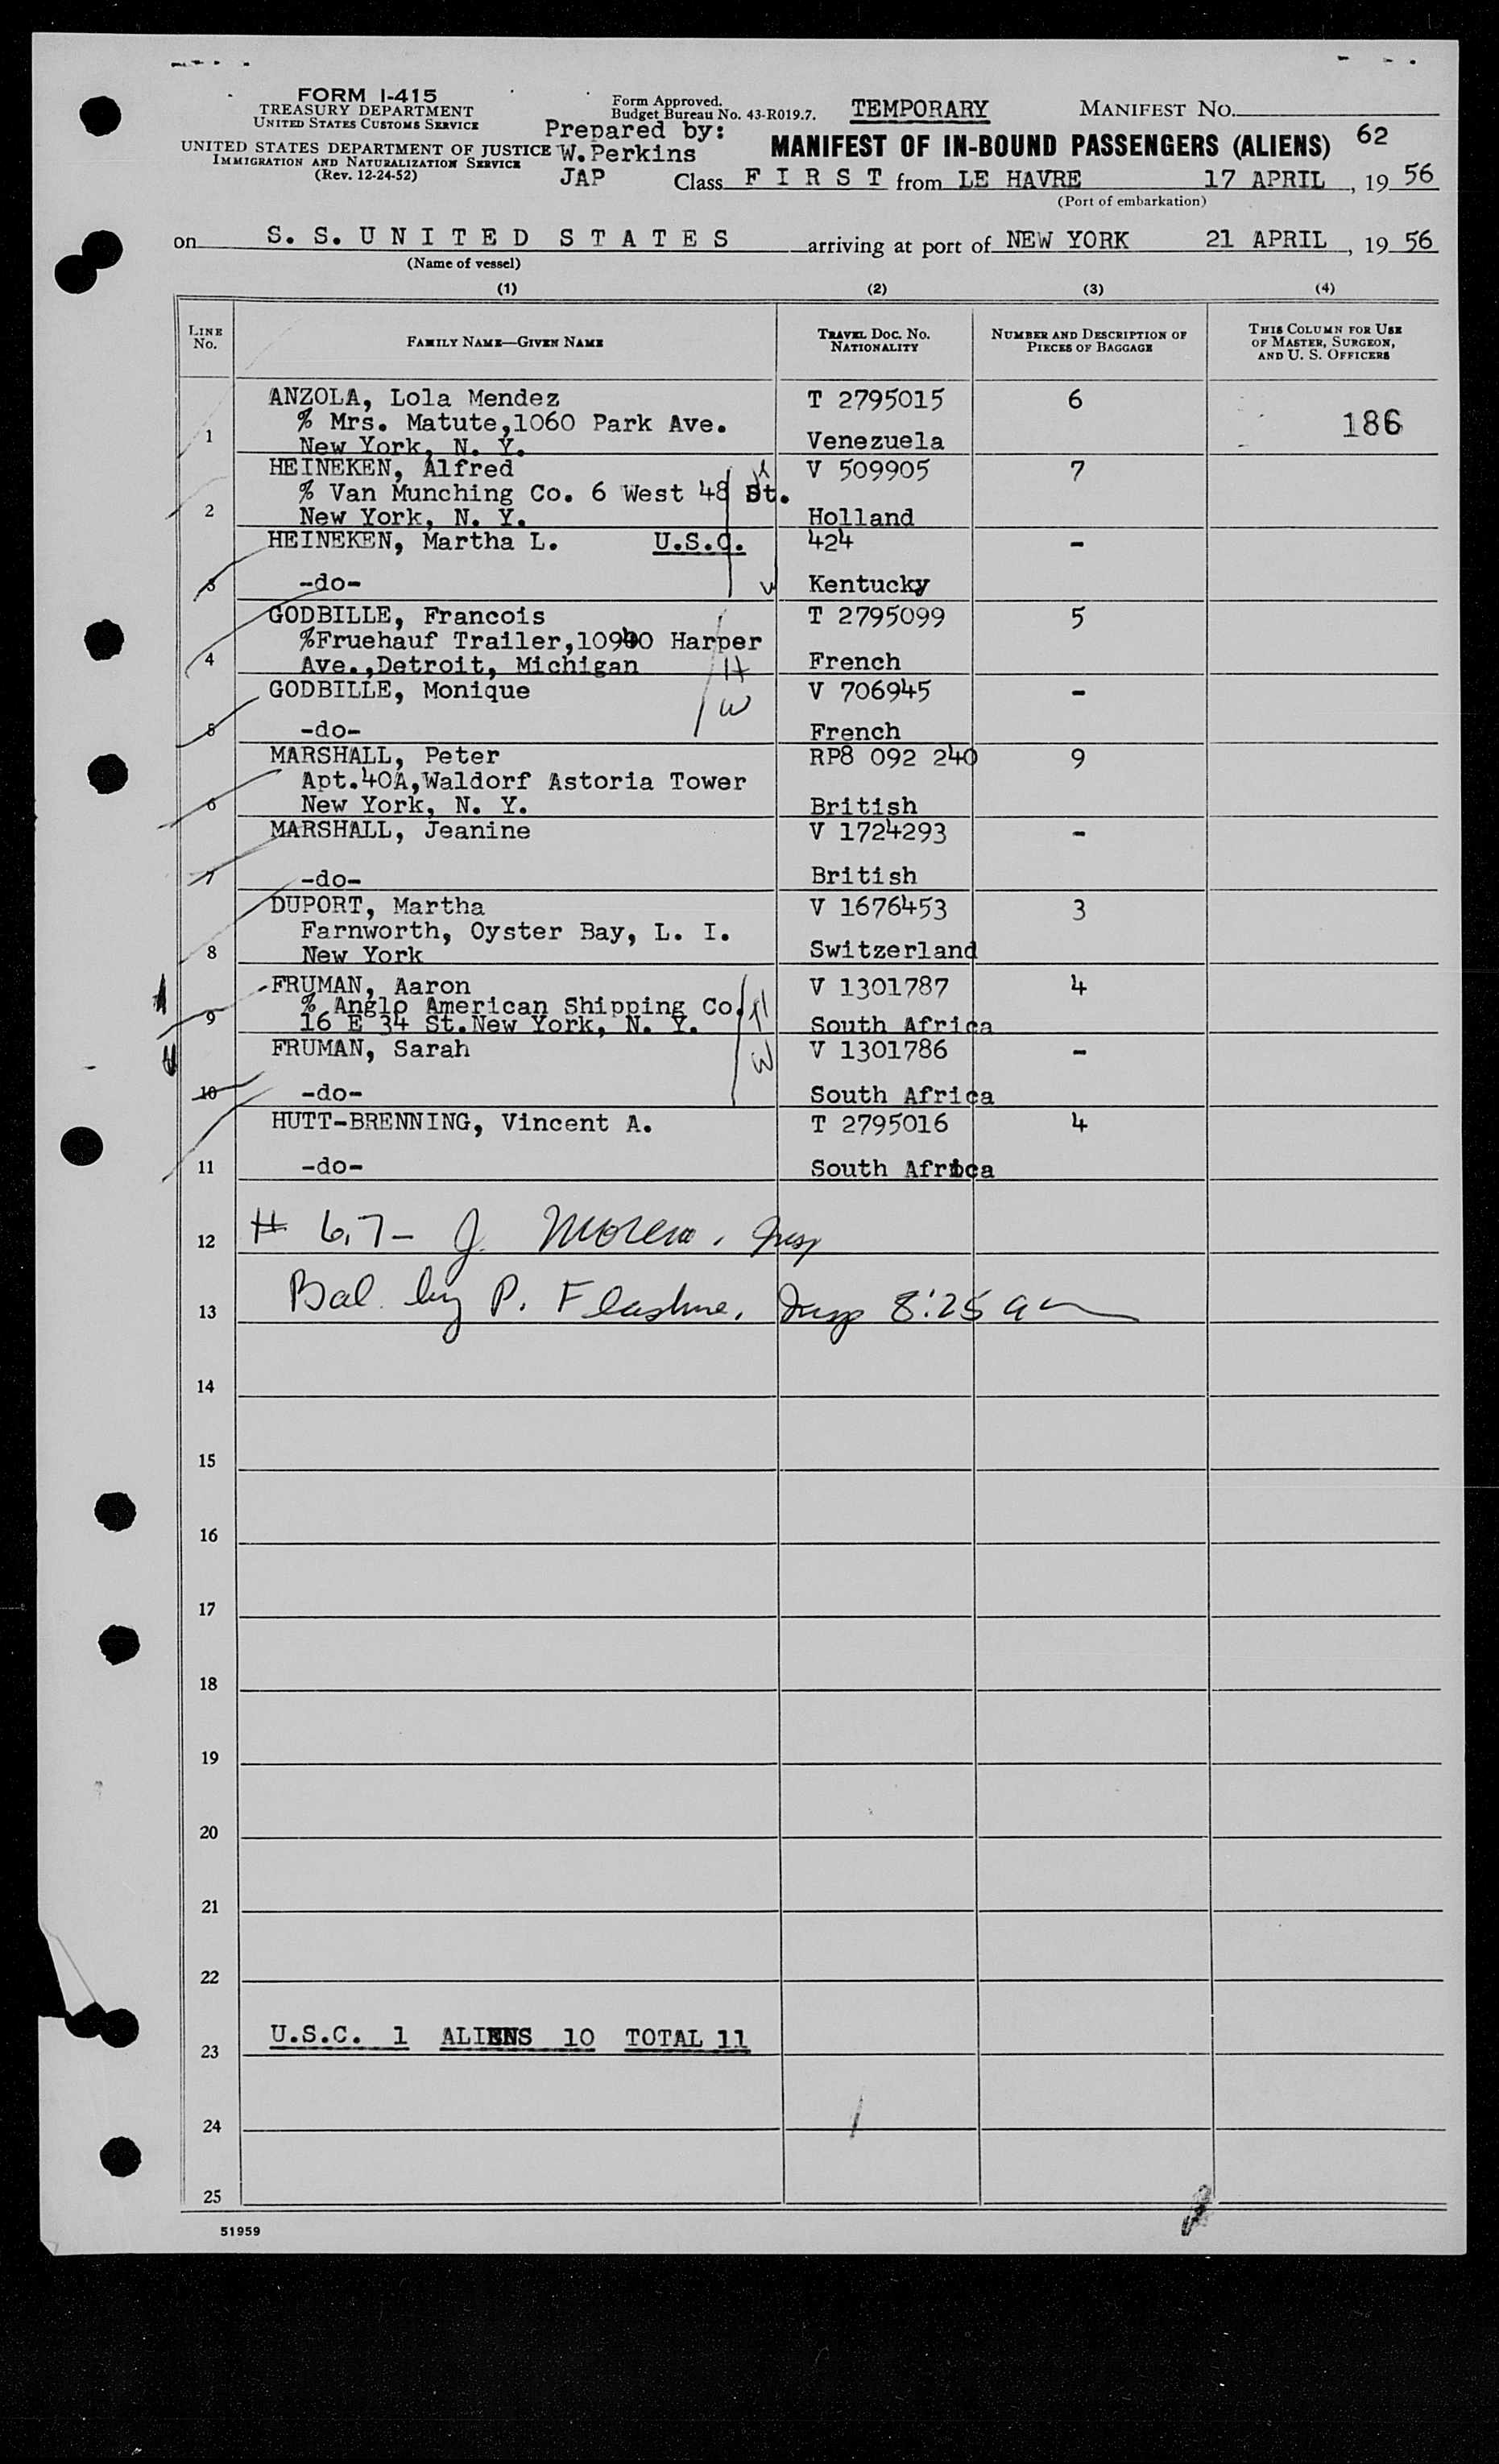 FORM I-415
TREASURY DEPARTMENT
UNITED STATES CUSTOMS SERVICE
UNITED STATES DEPARTMENT OF JUSTICE
IMMIGRATION AND NATURALIZATION SERVICE
(Rev. 12-24-52)
Form Approved.
Budget Bureau No. 43-R019.7.
Prepared by:
W. Perkins
JAP
TEMPORARY
MANIFEST NO.
MANIFEST OF IN-BOUND PASSENGERS (ALIENS) 62
Class F I R S T from LE HAVRE 17 APRIL, 19 56
(Port of embarkation)
on S. S. U N I T E D S T A T E S arriving at port of NEW YORK 21 APRIL, 19 56
(Name of vessel)
(1) (2) (3) (4)
LINE NO.
FAMILY NAME—GIVEN NAME
TRAVEL DOC. NO.
NATIONALITY
NUMBER AND DESCRIPTION OF
PIECES OF BAGGAGE
THIS COLUMN FOR USE
OF MASTER, SURGEON,
AND U. S. OFFICERS
ANZOLA, Lola Mendez T 2795015 6
% Mrs. Matute,1060 Park Ave. 186
1 New York, N. Y. Venezuela
HEINEKEN, Alfred V 509905 7
% Van Munching Co. 6 West 48 St.
2 New York, N. Y. Holland
HEINEKEN, Martha L. U.S.C. 424 -
3 -do- W Kentucky
GODBILLE, Francois T 2795099 5
%Fruehauf Trailer,10940 Harper
4 Ave.,Detroit, Michigan H French
GODBILLE, Monique V 706945 -
W
5 -do- French
MARSHALL, Peter RP8 092 240 9
Apt.40A,Waldorf Astoria Tower
6 New York, N. Y. British
MARSHALL, Jeanine V 1724293 -
7 -do- British
DUPORT, Martha V 1676453 3
Farnworth, Oyster Bay, L. I.
8 New York Switzerland
FRUMAN, Aaron V 1301787 4
% Anglo American Shipping Co. H
9 16 E 34 St.New York, N. Y. South Africa
FRUMAN, Sarah V 1301786 -
W
10 -do- South Africa
HUTT-BRENNING, Vincent A. T 2795016 4
11 -do- South Africa
12 # 6,7- J. Insp
13 Bal. by P. Insp 8:25 am
14
15
16
17
18
19
20
21
22
23 U.S.C. 1 ALIENS 10 TOTAL 11
24
25
51959